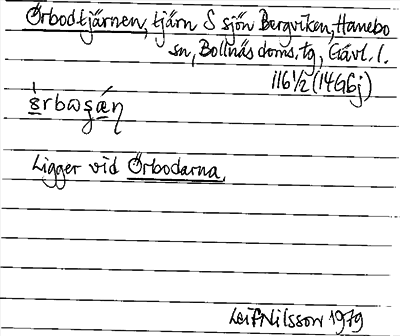 Örbodtjärnen, tjärn S sjön Bergviken, Hanebo
sn, Bollnäs doms.tg, Gävl. l.
116 1/2 (14G6j)
Ligger vid Örbodarna.
Leif Nilsson 1979